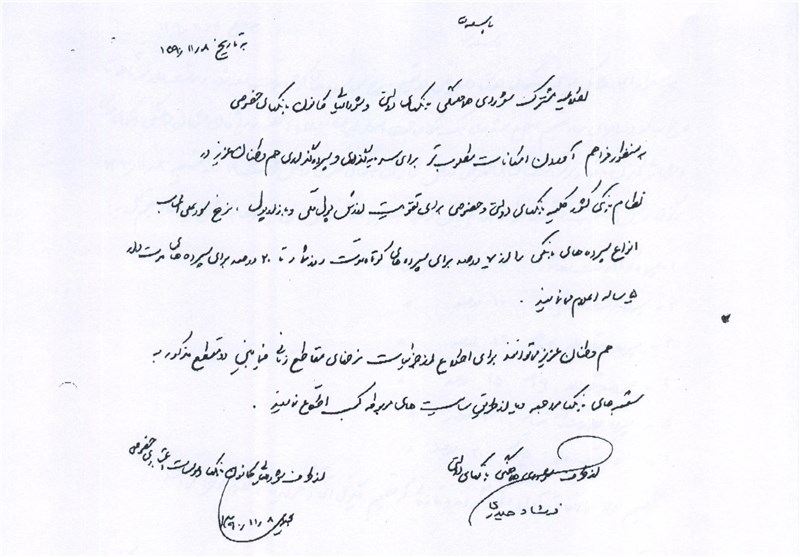 باسمه تعالی
به تاریخ ۱۳۹۰/۱۱/۰۸
اطلاعیه مشترک شورای هماهنگی بانکهای دولتی و شورایعالی کانون بانکهای خصوصی
به منظور فراهم آوردن امکانات مطلوب تر برای سرمایه گذاری و سپرده گذاری هم وطنان عزیز در
نظام بانکی کشور کلیه بانکهای دولتی و خصوصی برای تقویت ارزش پول ملی و بازار پول ، نرخ سود علی الحساب
انواع سپرده های بانکی را از ۷ درصد برای سپرده های کوتاه مدت روزشمار تا ۲۰ درصد برای سپرده های مدت دار
۵ ساله اعلام می نمایند .
هم وطنان عزیز میتوانند برای اطلاع از جزئیات نرخهای مقاطع زمانی فیمابین دو مقطع مذکور به
شعبه های بانکها مراجعه و یا از طریق سایت های مربوطه کسب اطلاع نمایند .
از طرف شورای هماهنگی بانکهای دولتی
فرشاد حیدری
از طرف شورایعالی کانون بانکها و موسسات اعتباری خصوصی
۱۳۹۰/۱۱/۸